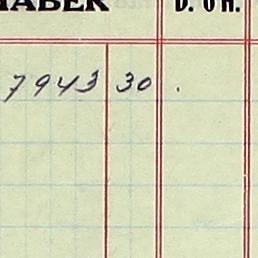 HABER D. O H.
7943 30 .